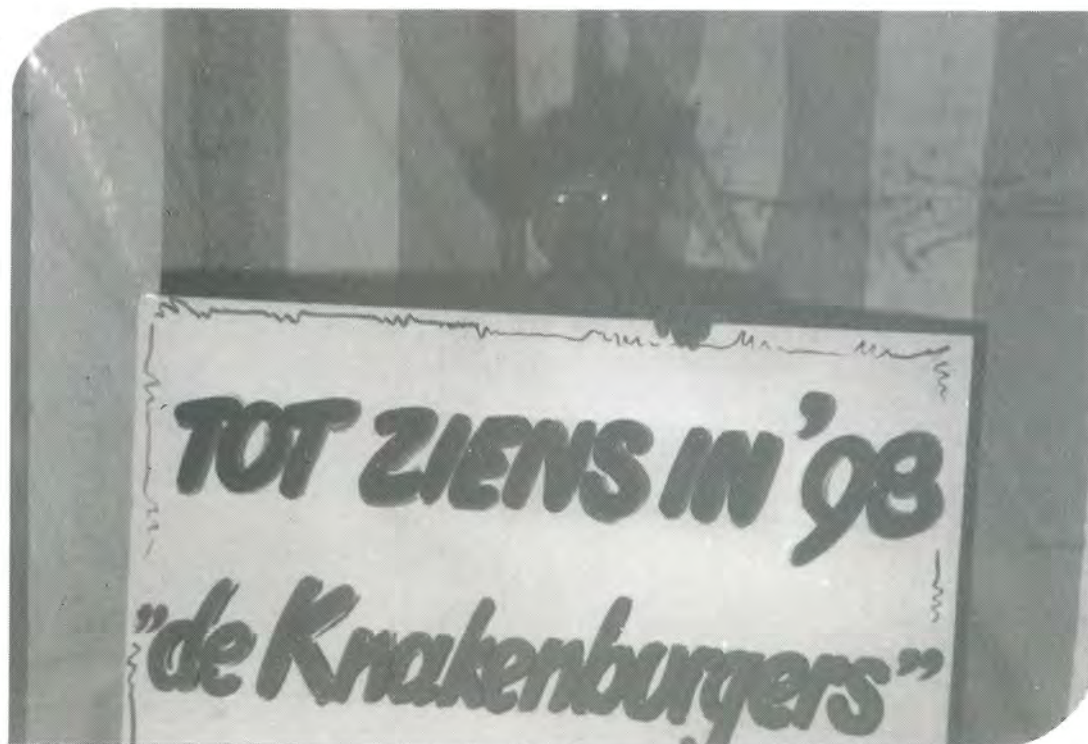 TOT ZIENS IN '98
"de Knakenburgers"